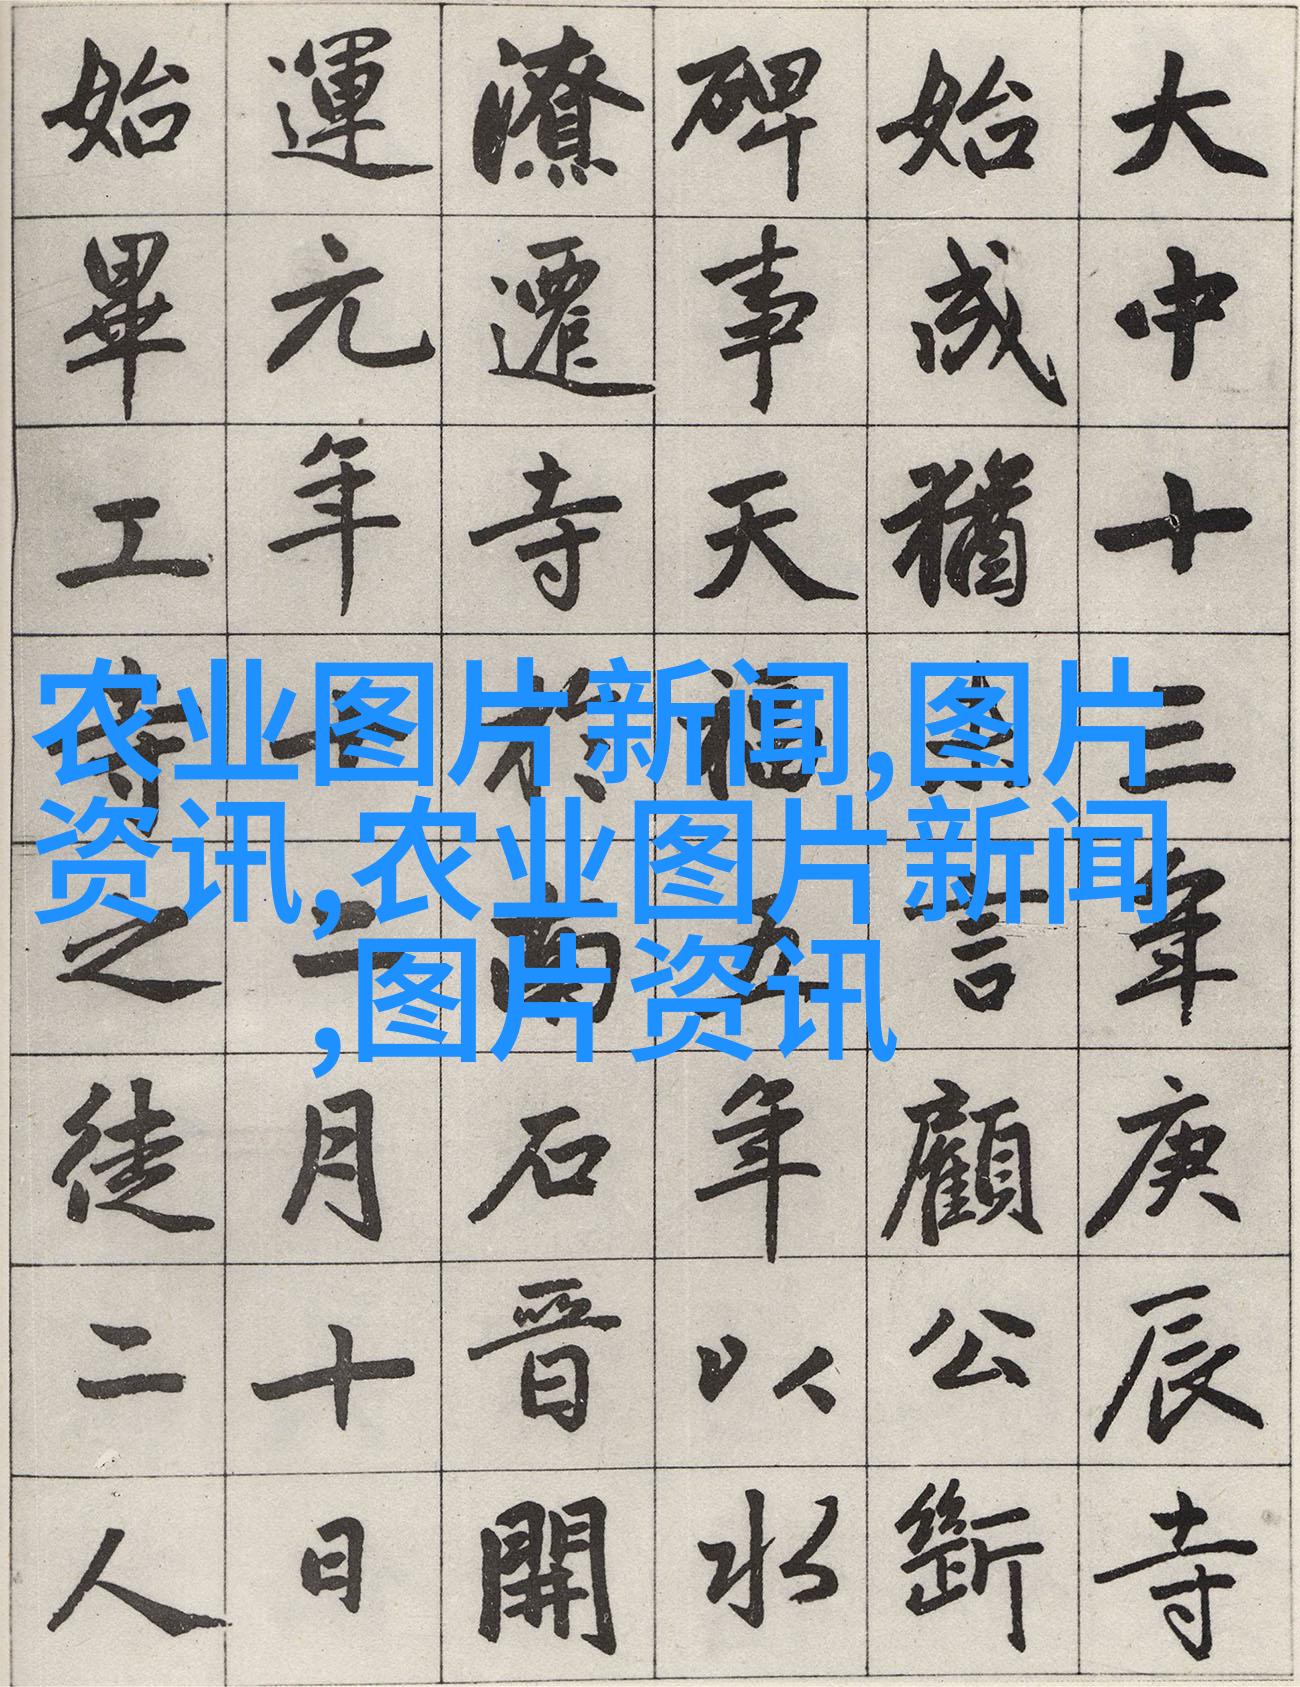 大中十三年庚辰寺
始成猶言顧公
碑事天福五年以水
潦遷寺於高石晉開
運元年十二月十日
始畢工寺之徒二人
农业图片新闻,图片
资讯,农业图片新闻
,图片资讯